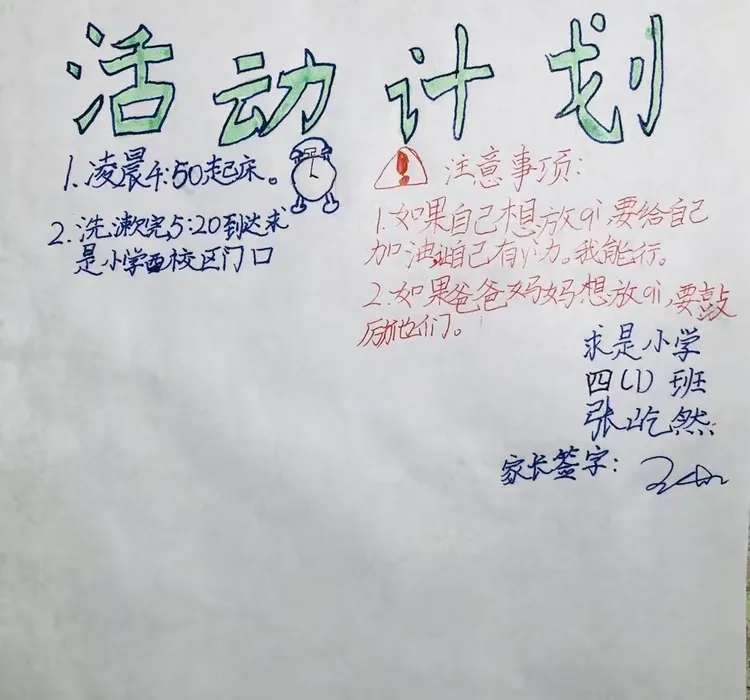 活动计划
1.凌晨4:50起床。
2.洗漱完,5:20到达求
是小学西校区门口
注意事项:
1.如果自己想放qi,要给自己
加油,让自己有动力。我能行。
2.如果爸爸妈妈想放qi,要鼓
励他们。
求是小学
四(1)班
张屹然
家长签字: